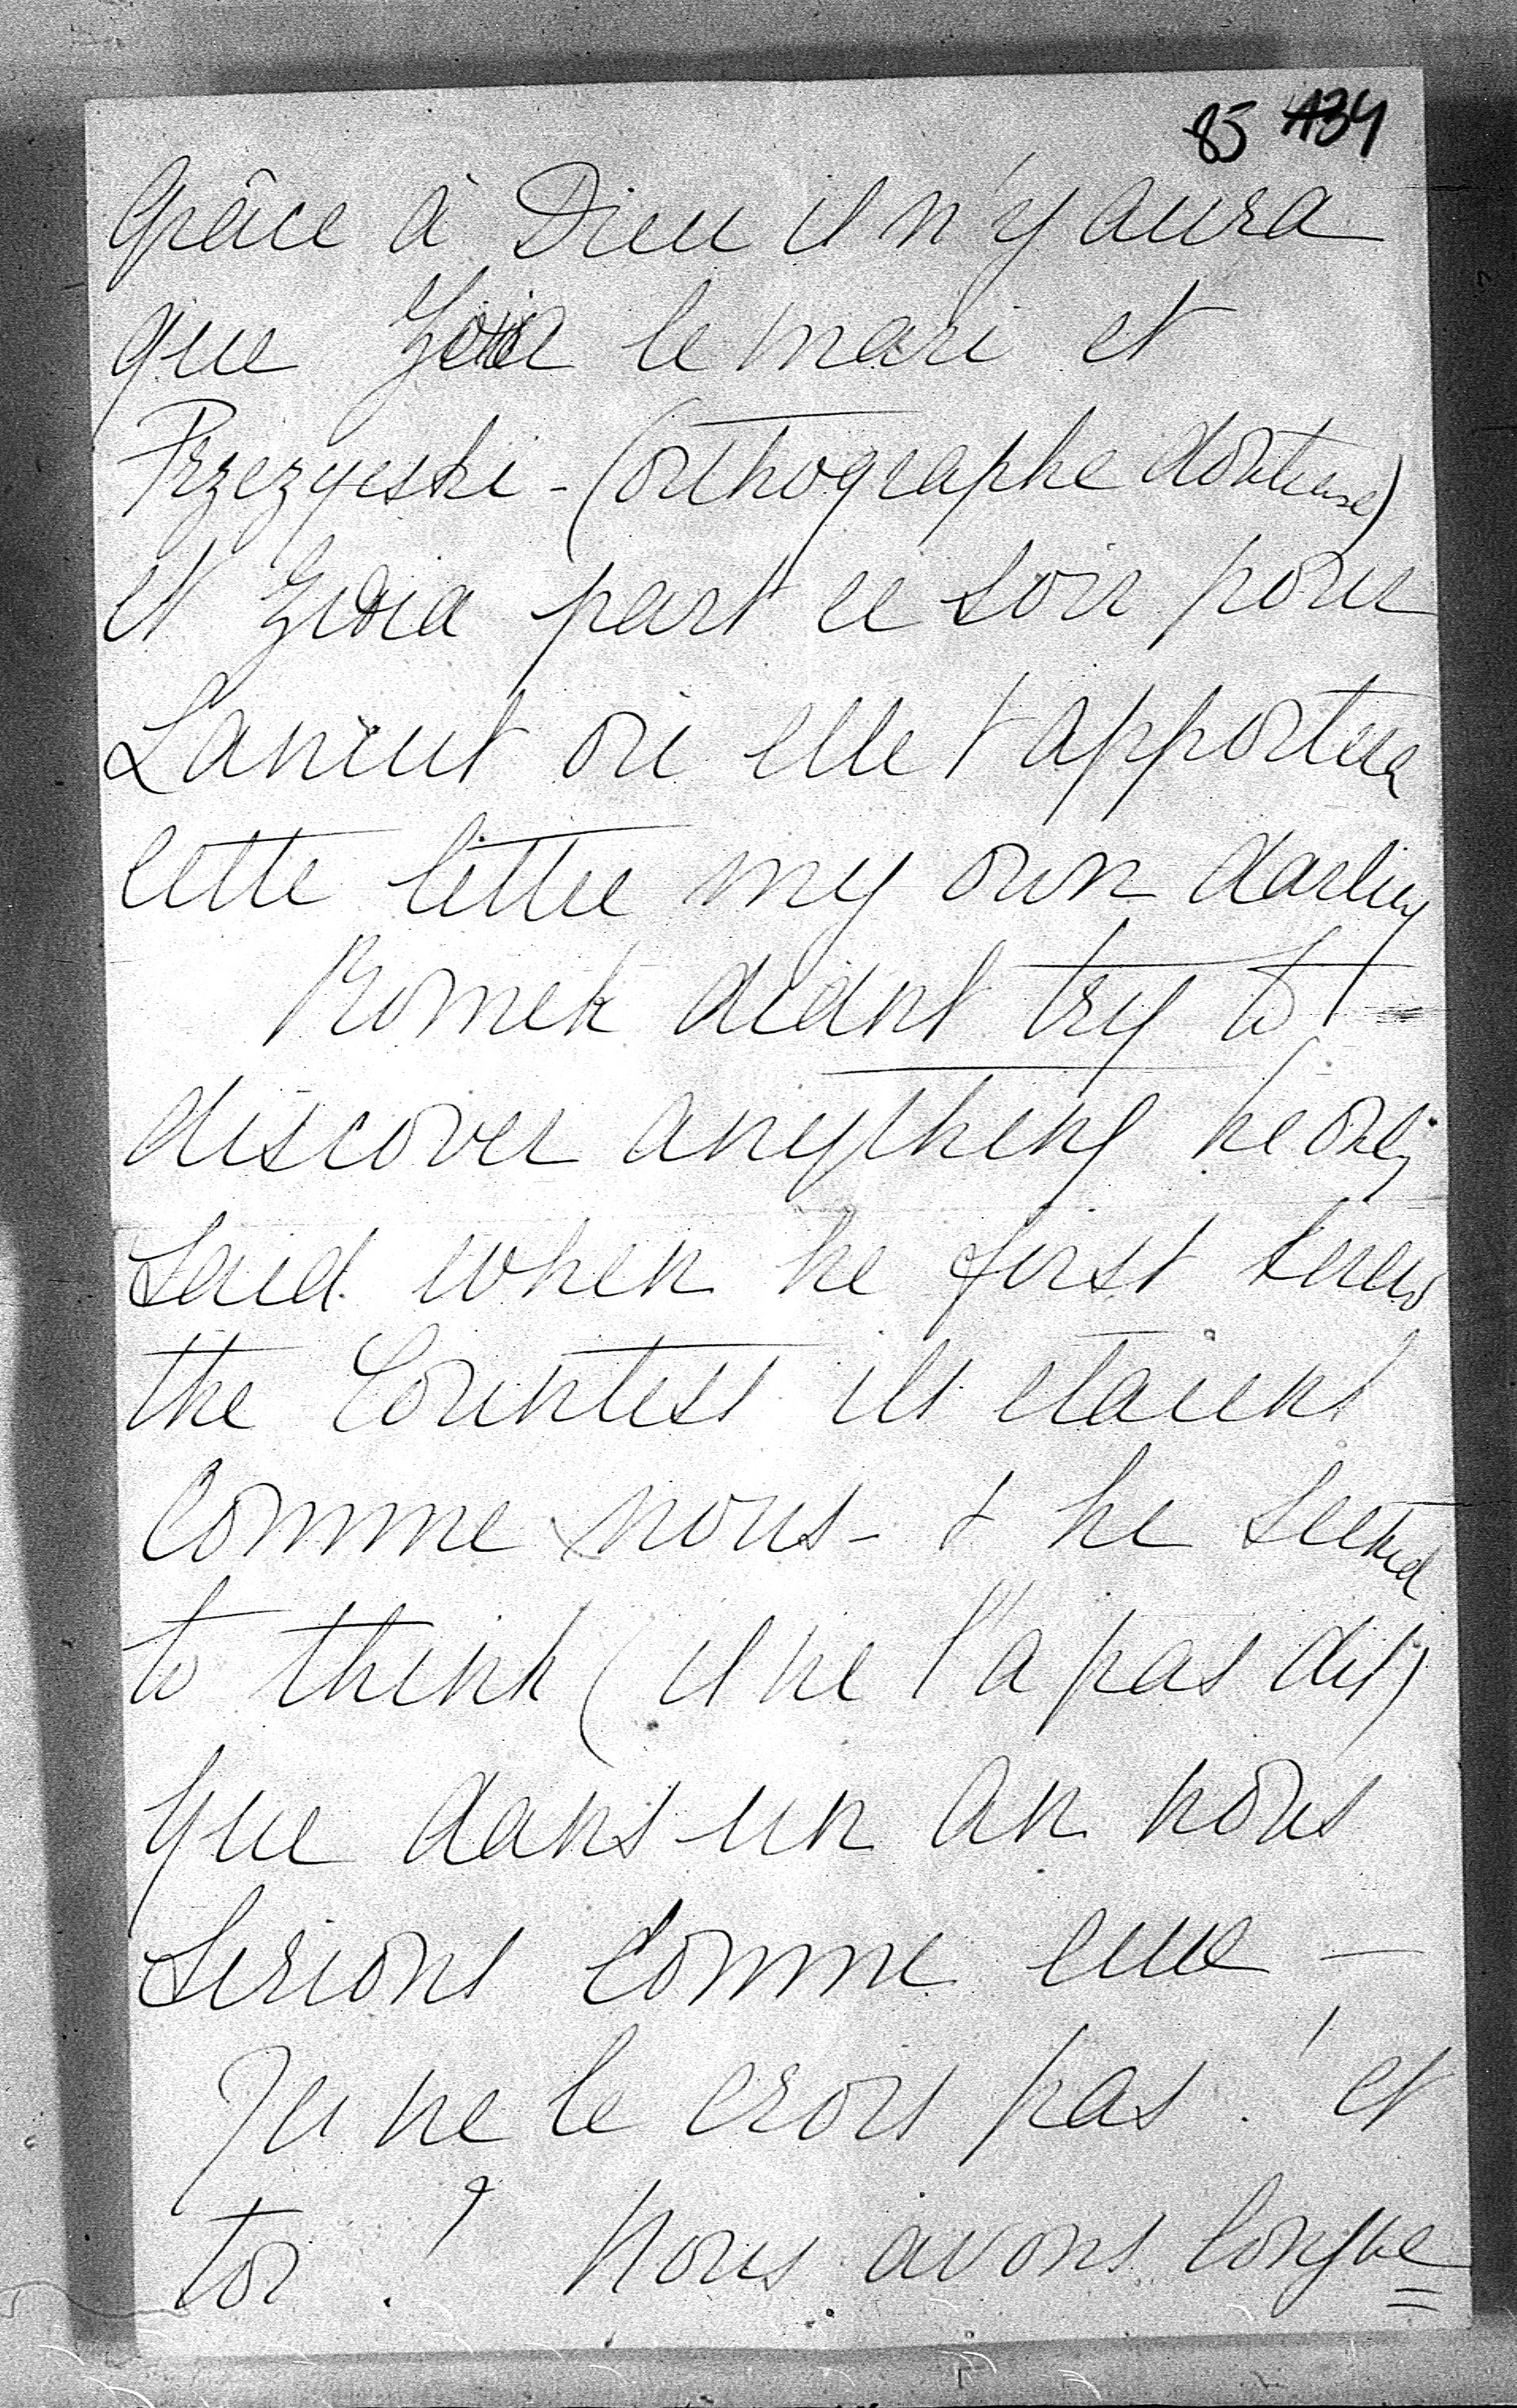 85 134
Grâce à Dieu il n'y aura
que le mari et
Przezyeski - (orthographe douteuse)
et Zizia part ce soir pour
Lancut où elle t'apportera
cette lettre my own darling
Romek didnt try to
discover anything he only
said when he first knew
the Countess ils etaient
comme nous - & he seemed
to think (il ne l'a pas dit)
que dans un an nous
serions comme eux -
Je ne le crois pas! et
toi? Nous avons longue=